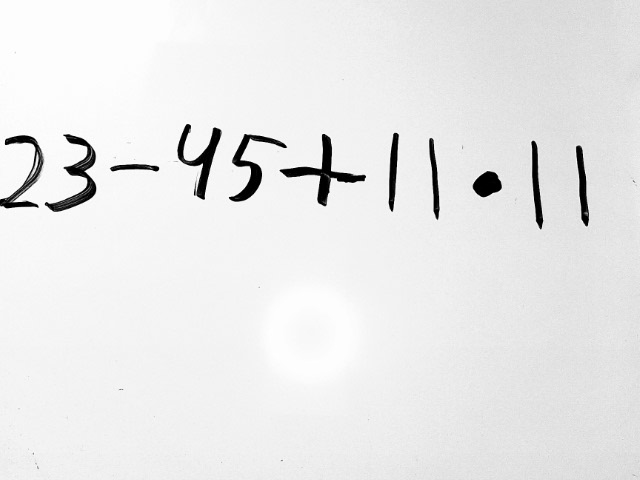 23-45+11•11